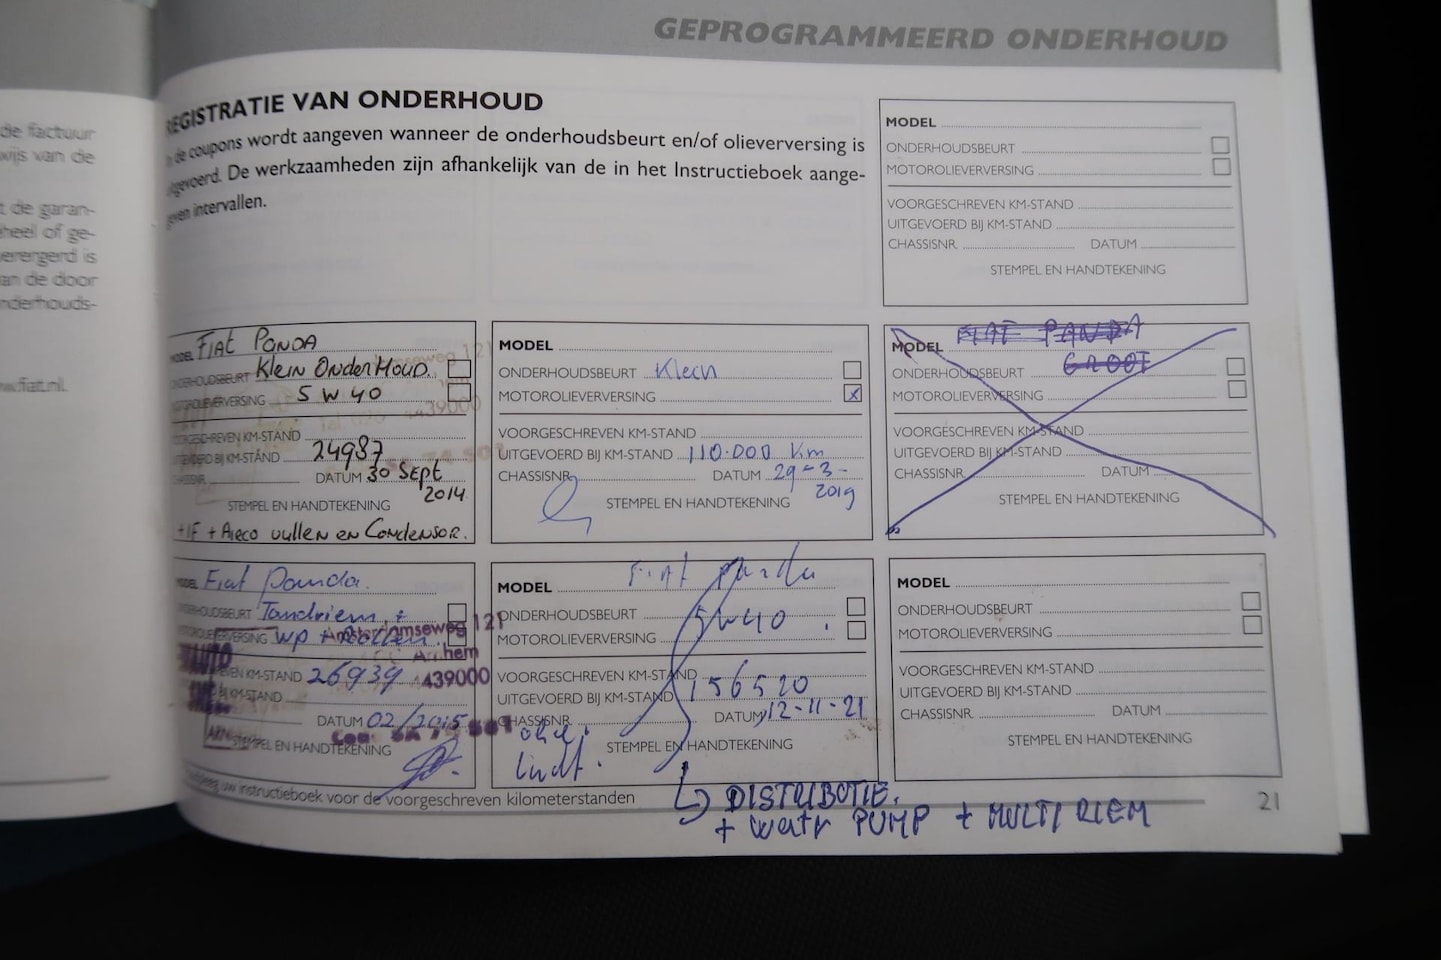 GEPROGRAMMEERD ONDERHOUD
de factuur
wijs van de
t de garan-
heel of ge-
verergerd is
an de door
nderhouds-
w.fiat.nl.
REGISTRATIE VAN ONDERHOUD
de coupons wordt aangeven wanneer de onderhoudsbeurt en/of olieverversing is
uitgevoerd. De werkzaamheden zijn afhankelijk van de in het Instructieboek aange-
geven intervallen.
MODEL
ONDERHOUDSBEURT
MOTOROLIEVERVERSING
VOORGESCHREVEN KM-STAND
UITGEVOERD BIJ KM-STAND
CHASSISNR. DATUM
STEMPEL EN HANDTEKENING
MODEL FIAT PANDA
ONDERHOUDSBEURT KLEIN ONDERHOUD
MOTOROLIEVERVERSING 5 W 40
VOORGESCHREVEN KM-STAND
UITGEVOERD BIJ KM-STAND 24987
DATUM 30 SEPT
2014
STEMPEL EN HANDTEKENING
+IF + AIRCO VULLEN EN CONDENSOR.
MODEL
ONDERHOUDSBEURT Klein
MOTOROLIEVERVERSING x
VOORGESCHREVEN KM-STAND
UITGEVOERD BIJ KM-STAND 110.000 km
CHASSISNR. DATUM 29-3-
2019
STEMPEL EN HANDTEKENING
MODEL FIAT PANDA
ONDERHOUDSBEURT GROOT
MOTOROLIEVERVERSING
VOORGESCHREVEN KM-STAND
UITGEVOERD BIJ KM-STAND
CHASSISNR. DATUM
STEMPEL EN HANDTEKENING
MODEL Fiat Panda.
ONDERHOUDSBEURT Tandriem +
MOTOROLIEVERVERSING WP +
Amsterdamseweg 121
Arnhem
VOORGESCHREVEN KM-STAND 26939 439000
KM-STAND
DATUM 02/2015
STEMPEL EN HANDTEKENING
MODEL Fiat panda
ONDERHOUDSBEURT 5W40
MOTOROLIEVERVERSING
VOORGESCHREVEN KM-STAND
UITGEVOERD BIJ KM-STAND 156520
CHASSISNR. DATUM 12-11-21
STEMPEL EN HANDTEKENING
MODEL
ONDERHOUDSBEURT
MOTOROLIEVERVERSING
VOORGESCHREVEN KM-STAND
UITGEVOERD BIJ KM-STAND
CHASSISNR. DATUM
STEMPEL EN HANDTEKENING
uw instructieboek voor de voorgeschreven kilometerstanden
DISTRIBUTIE.
+ Watr PUMP + MULTI RIEM
21